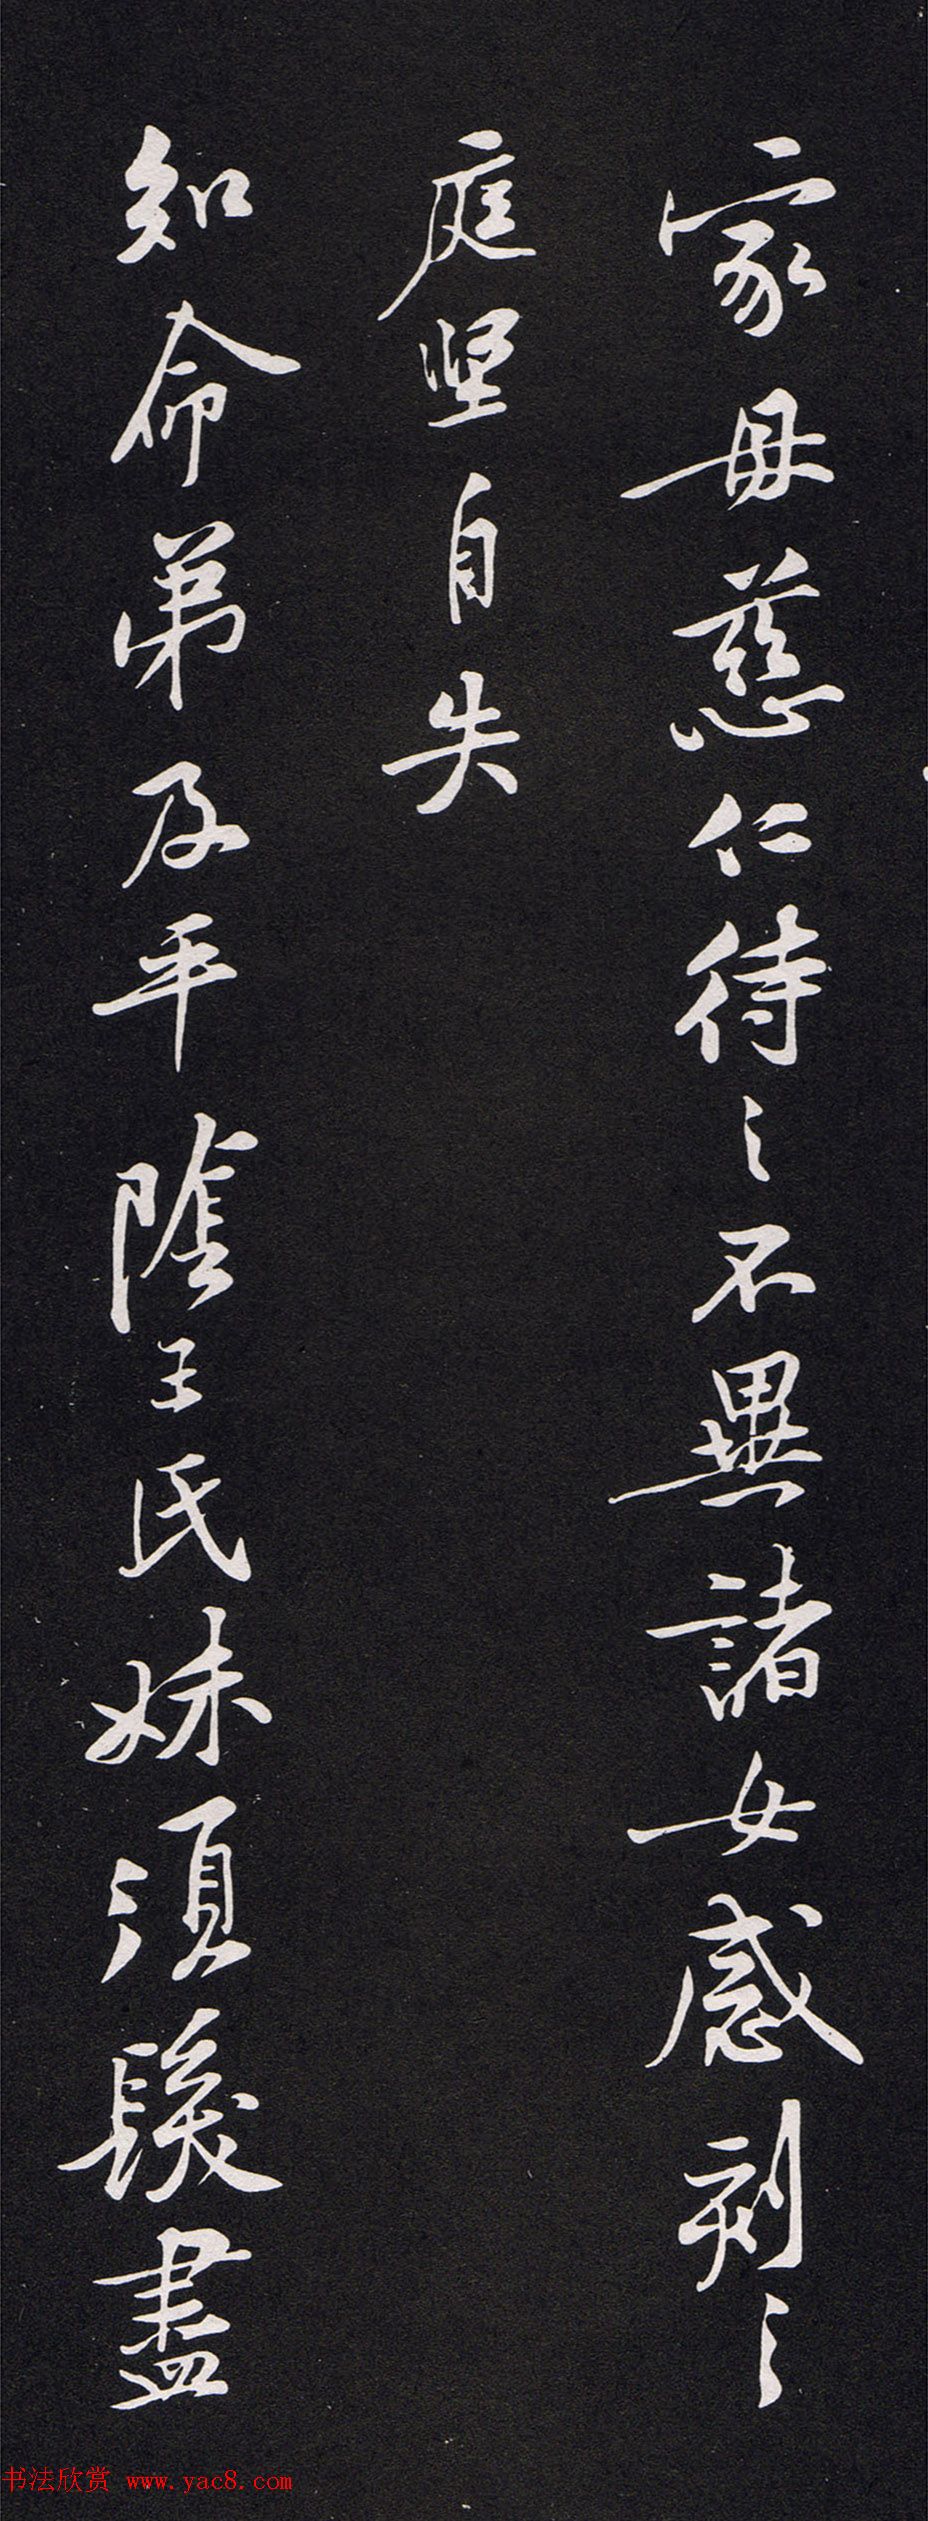 家母慈仁待之不異諸女感刻之
庭坚自失
知命弟及平陰王氏妹須髮盡
书法欣赏 www.yac8.com